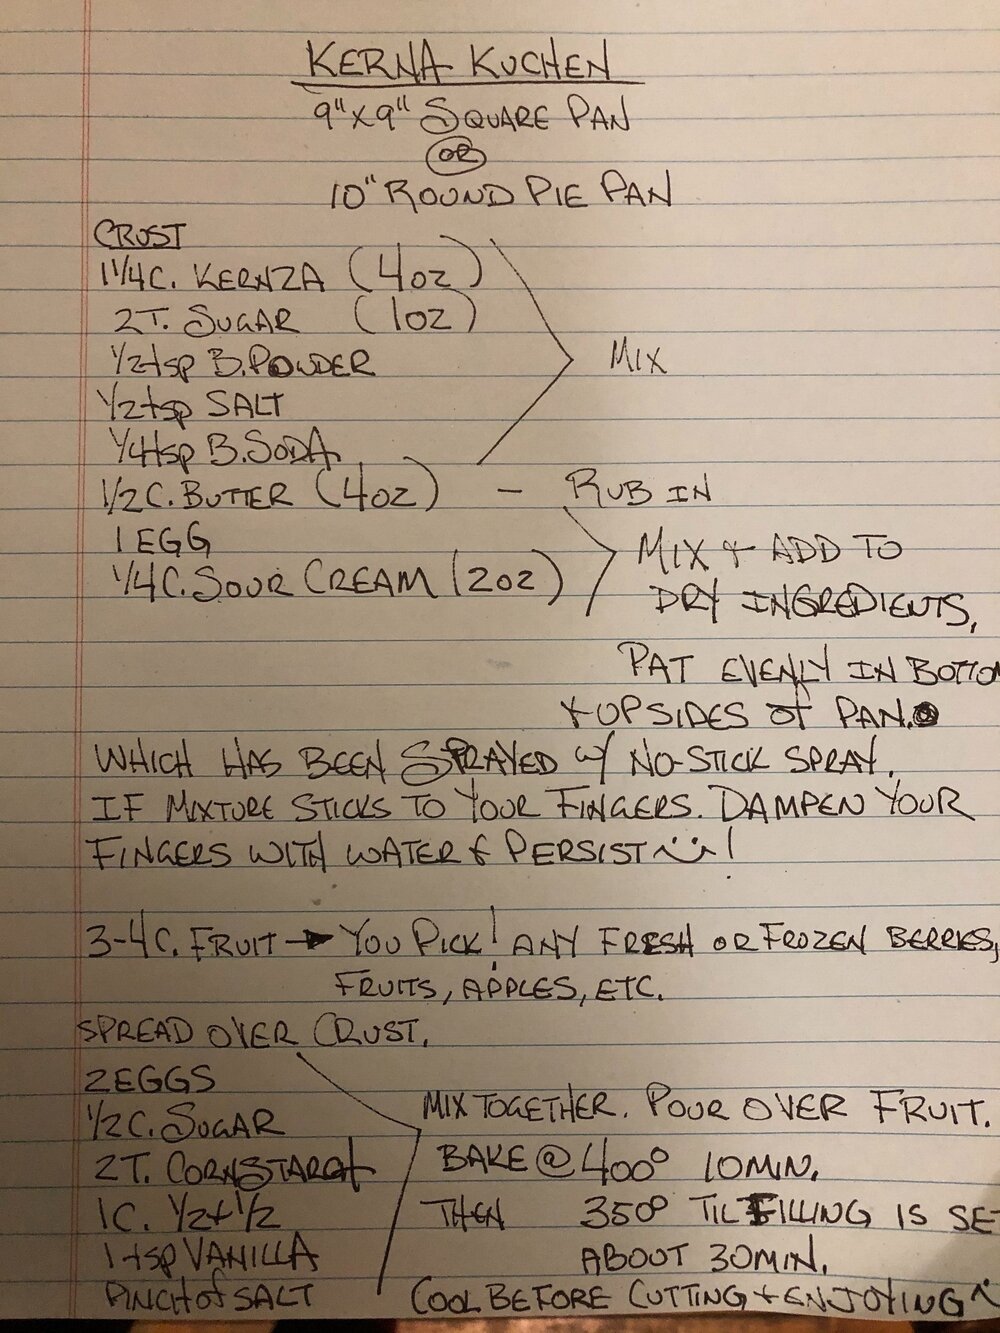 KERNA KUCHEN
9" X 9" SQUARE PAN
OR
10" ROUND PIE PAN
CRUST
1 1/4 C. KERNZA (4oz)
2T. SUGAR (1oz)
1/2 tsp B. POWDER
1/2 tsp SALT
1/4 tsp B. SODA
MIX
1/2 C. BUTTER (4oz) - RUB IN
1 EGG
1/4 C. SOUR CREAM (2oz)
MIX & ADD TO
DRY INGREDIENTS,
PAT EVENLY IN BOTTOM
& UPSIDES of PAN.
WHICH HAS BEEN SPRAYED w/ NO-STICK SPRAY.
IF MIXTURE STICKS TO YOUR FINGERS. DAMPEN YOUR
FINGERS WITH WATER & PERSIST !
3-4C. FRUIT → YOU PICK! ANY FRESH OR FROZEN BERRIES,
FRUITS, APPLES, ETC.
SPREAD OVER CRUST.
2 EGGS
1/2 C. SUGAR
2T. CORNSTARCH
1C. 1/2 + 1/2
1 tsp VANILLA
PINCH of SALT
MIX TOGETHER. POUR OVER FRUIT.
BAKE @ 400° 10 MIN.
THEN 350° TIL FILLING IS SE
ABOUT 30 MIN.
COOL BEFORE CUTTING & ENJOYING